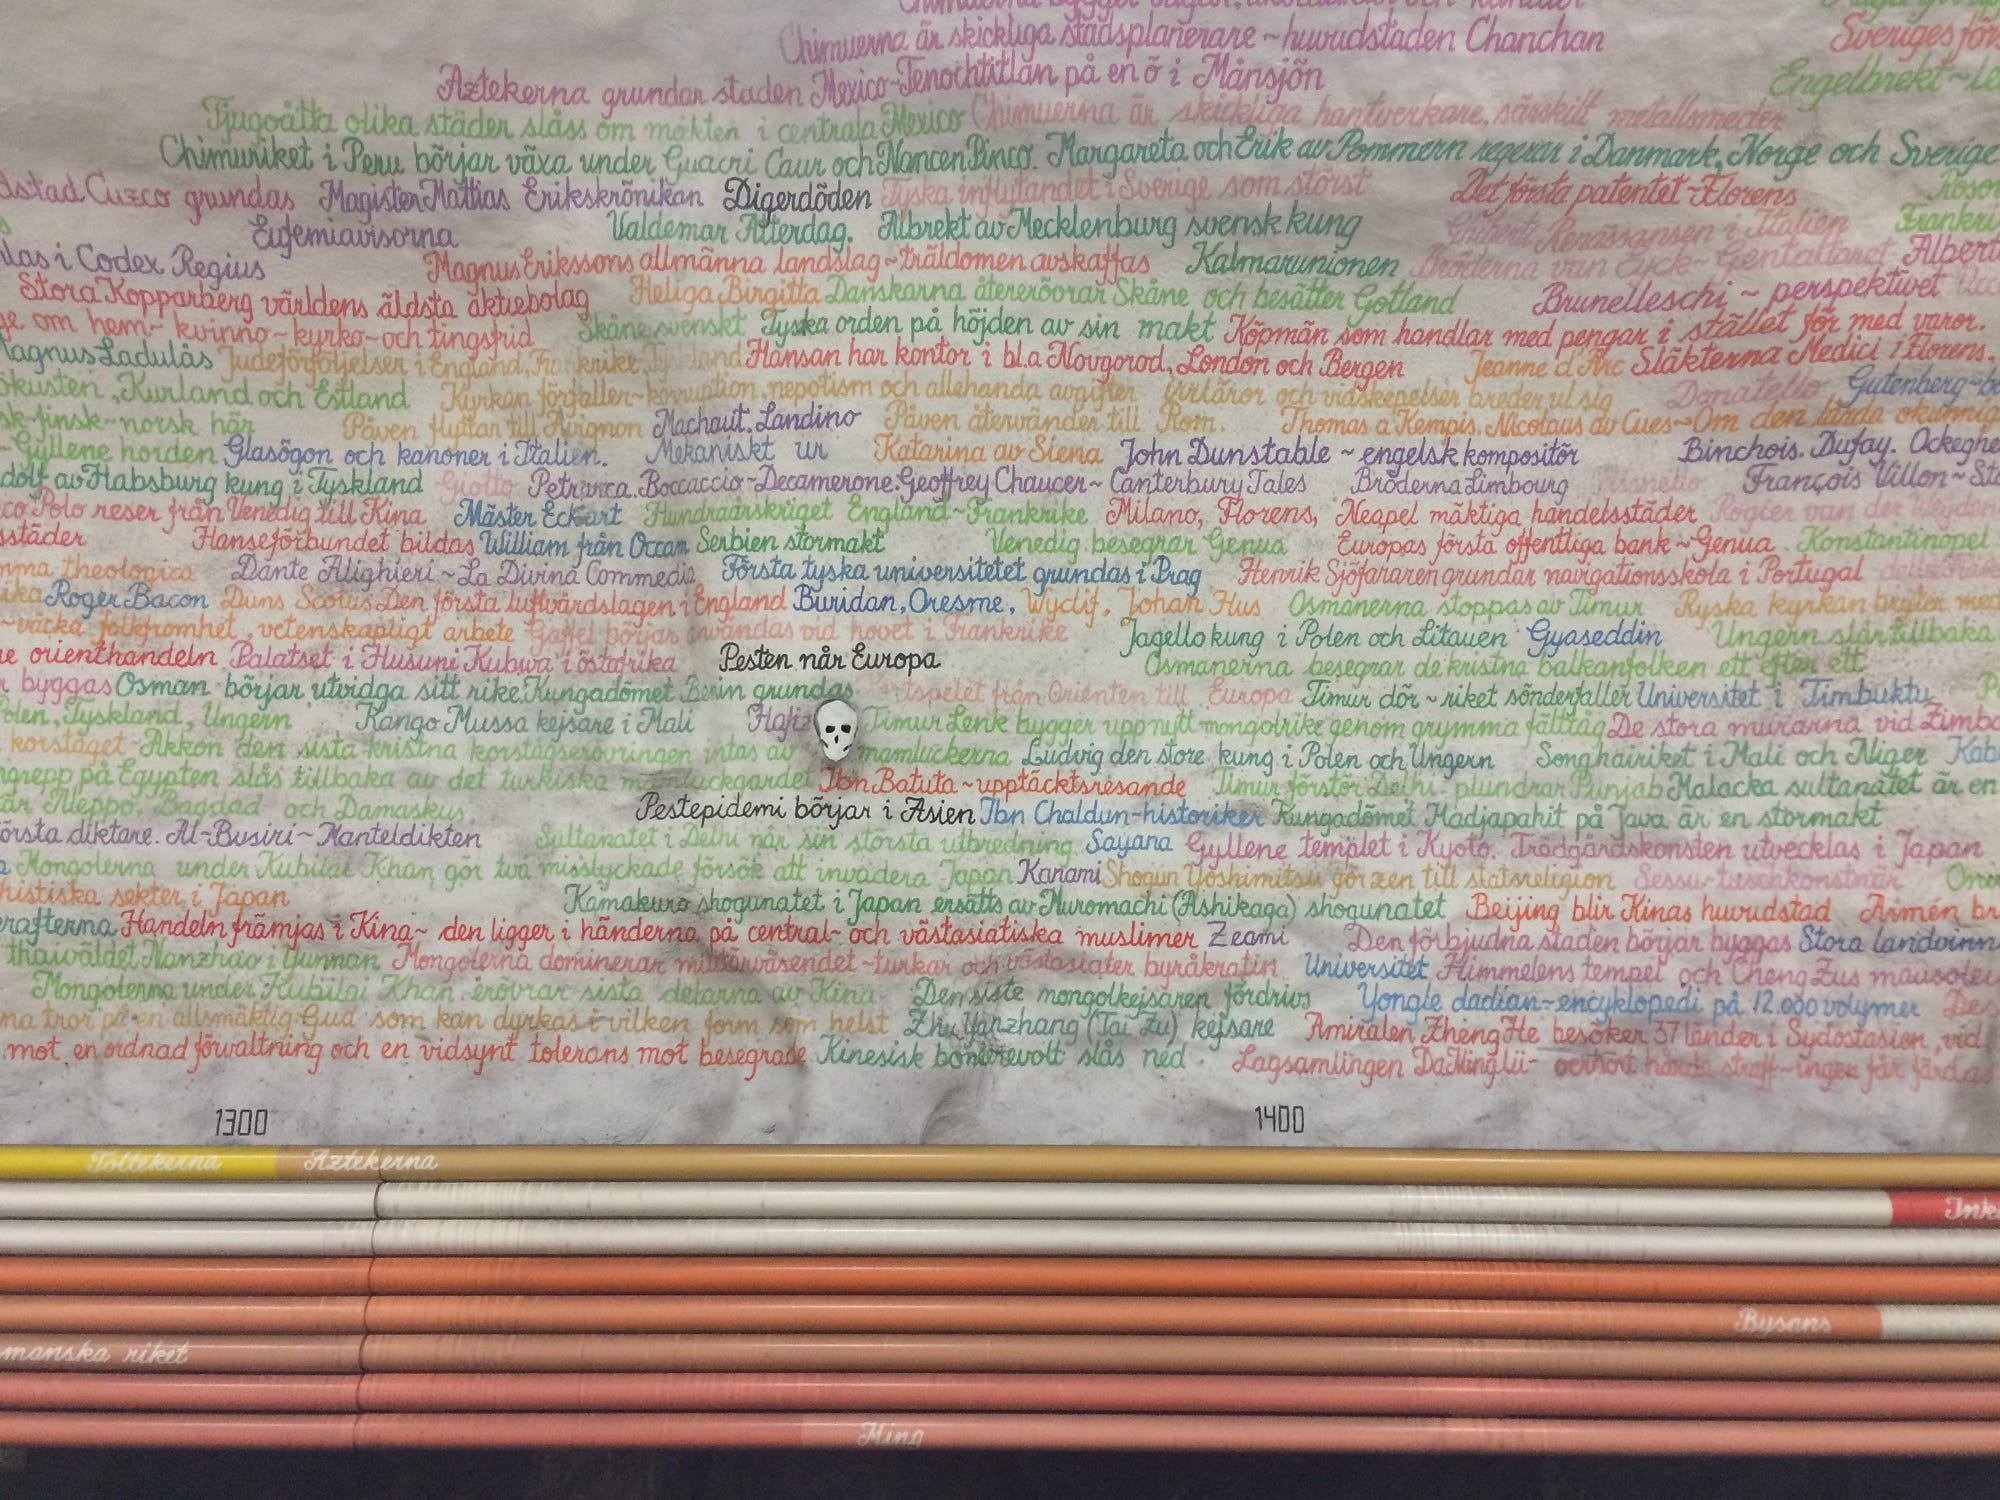 Chimuerna bygger
Chimuerna är skickliga stadsplanerare ~ huvudstaden Chanchan Sveriges
Aztekerna grundar staden Mexico-Tenochtitlán på en ö i Månsjön Engelbrekt
Tjugoåtta olika städer slåss om makten i centrala Mexico Chimuerna är skickliga hantverkare, särskilt metallsmeder
Chimuriket i Peru börjar växa under Guacri Caur och Nancen Pinco. Margareta och Erik av Pommern regerar i Danmark, Norge och Sverige
Cuzco grundas Magister Mattias Erikskrönikan Digerdöden Tyska inflytandet i Sverige som störst Det första patentet ~ Florens
Eufemiavisorna Valdemar Atterdag. Albrekt av Mecklenburg svensk kung Ghiberti Renässansen i Italien
i Codex Regius Magnus Erikssons allmänna landslag ~ träldomen avskaffas Kalmarunionen Bröderna van Eyck ~ Gentaltaret
Stora Kopparberg världens äldsta aktiebolag Heliga Birgitta Danskarna återerövrar Skåne och besätter Gotland Brunelleschi ~ perspektivet
om hem- kvinno- kyrko- och tingsfrid Skåne svenskt Tyska orden på höjden av sin makt Köpmän som handlar med pengar i stället för med varor.
Magnus Ladulås Judeförföljelser i England, Frankrike, Tyskland Hansan har kontor i bl.a Novgorod, London och Bergen Jeanne d'Arc Släkterna Medici i Florens.
Kurland och Estland Kyrkan förfaller ~ korruption, nepotism och allehanda avgifter Irrläror och vidskepelser breder ut sig Donatello Gutenberg
finsk-norsk här Påven flyttar till Avignon Machaut. Landino Påven återvänder till Rom. Thomas a Kempis. Nicolaus av Cues ~ Om den lärda
Gyllene horden Glasögon och kanoner i Italien. Mekaniskt ur Katarina av Siena John Dunstable ~ engelsk kompositör Binchois. Dufay.
av Habsburg kung i Tyskland Giotto Petrarca. Boccaccio ~ Decamerone. Geoffrey Chaucer ~ Canterbury Tales Bröderna Limbourg Pisanello François Villon
Polo reser från Venedig till Kina Mäster Eckart Hundraårskriget England ~ Frankrike Milano, Florens, Neapel mäktiga handelsstäder Rogier van der Weyden
Hanseförbundet bildas William från Occam Serbien stormakt Venedig besegrar Genua Europas första offentliga bank ~ Genua. Konstantinopel
theologica Dante Alighieri ~ La Divina Commedia Första tyska universitetet grundas i Prag Henrik Sjöfararen grundar navigationsskola i Portugal
Roger Bacon Duns Scotus Den första luftvårdslagen i England Buridan, Oresme, Wyclif, Johan Hus Osmanerna stoppas av Timur Ryska kyrkan bryter med
~ väcka folkfromhet, vetenskapligt arbete Gaffel börjar användas vid hovet i Frankrike Jagello kung i Polen och Litauen Gyaseddin Ungern slår tillbaka
orienthandeln Palatset i Husuni Kubwa i östafrika Pesten når Europa Osmanerna besegrar de kristna balkanfolken ett efter ett
byggas Osman börjar utvidga sitt rike. Kungadömet Benin grundas från Orienten till Europa Timur dör ~ riket sönderfaller Universitet i Timbuktu
Polen, Tyskland, Ungern Kango Mussa kejsare i Mali Hafiz Timur Lenk bygger upp nytt mongolrike genom grymma fälttåg De stora murarna vid
korståget ~ Akkon den sista kristna korstågserövringen intas av mamluckerna Ludvig den store kung i Polen och Ungern Songhairiket i Mali och Niger
på Egypten slås tillbaka av det turkiska mamluckgardet Ibn Batuta ~ upptäcktsresande Timur förstör Delhi - plundrar Punjab Malacka sultanatet är en
Aleppo, Bagdad och Damaskus. Pestepidemi börjar i Asien Ibn Chaldun - historiker Kungadömet Madjapahit på Java är en stormakt
första diktare. Al-Busiri ~ Manteldikten Sultanatet i Delhi når sin största utbredning Sayana Gyllene templet i Kyoto. Trädgårdskonsten utvecklas i Japan
Mongolerna under Kubilai Khan gör två misslyckade försök att invadera Japan Kanami Shogun Yoshimitsu gör zen till statsreligion Sessu - tuschkonstnär
sekter i Japan Kamakura shogunatet i Japan ersätts av Muromachi (Ashikaga) shogunatet Beijing blir Kinas huvudstad
Handeln främjas i Kina ~ den ligger i händerna på central- och västasiatiska muslimer Zeami Den förbjudna staden börjar byggas Stora
thaiväldet Nanzhao i Yunnan Mongolerna dominerar militärväsendet ~ turkar och västasiater byråkratin Universitet Himmelens tempel och Cheng Zus
Mongolerna under Kubilai Khan erövrar sista delarna av Kina Den siste mongolkejsaren fördrivs Yongle dadian ~ encyklopedi på 12.000 volymer
tror på en allsmäktig Gud som kan dyrkas i vilken form som helst Zhu Yanzhang (Tai Zu) kejsare Amiralen Zheng He besöker 37 länder i Sydostasien, vid
mot en ordnad förvaltning och en vidsynt tolerans mot besegrade Kinesisk bonderevolt slås ned. Lagsamlingen Da Ming lü - oerhört hårda straff ~ ingen får färdas
1300 1400
Toltekerna Aztekerna
Bysans
riket
Ming